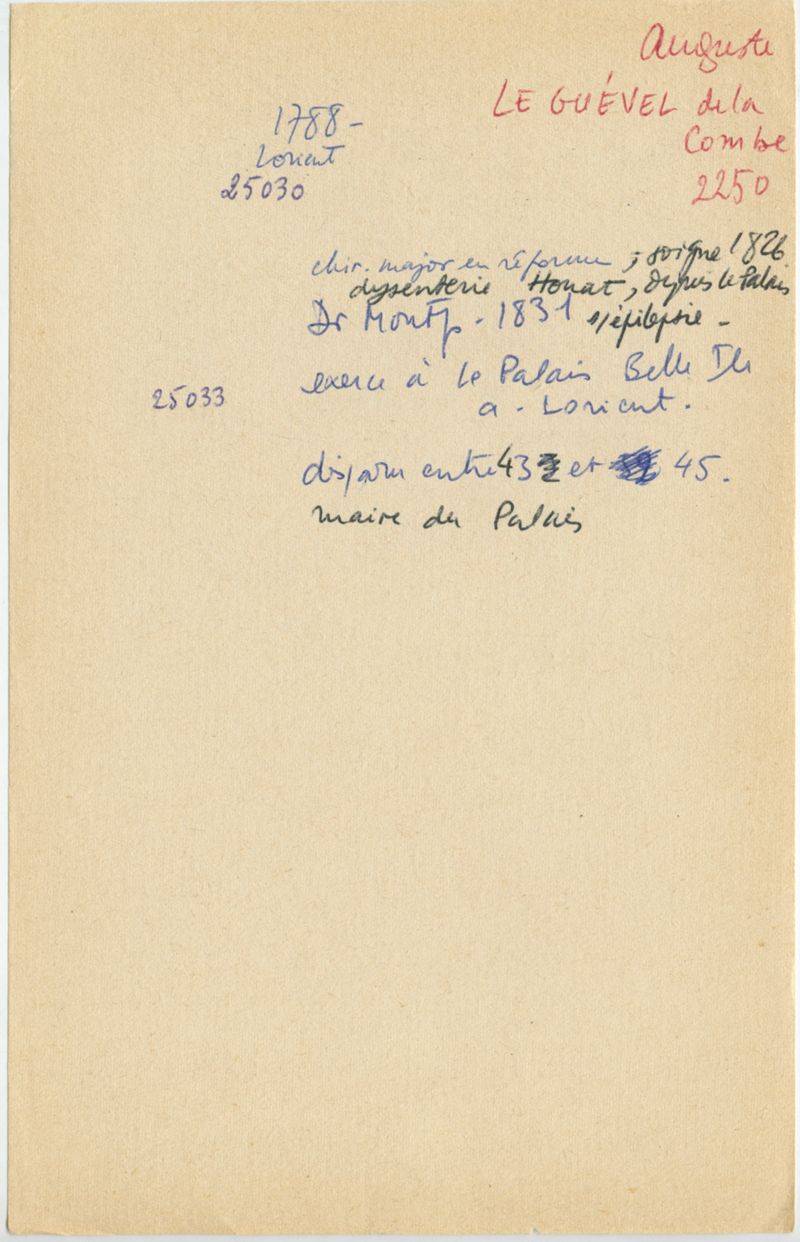 Auguste
LE GUÉVEL de la
Combe
2250
1788 -
Lorient
25030
chir. major en réforme ; soigne 1826
dysenterie Houat, depuis le Palais
Dr Montp. - 1831 s/épilepsie -
exerce à le Palais Belle Ile
25033
a - Lorient.
disparu entre 43 et 45.
maire du Palais